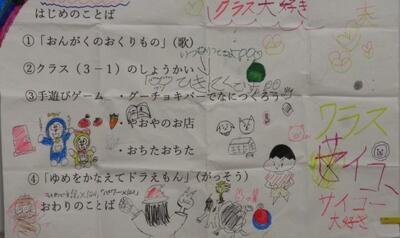 はじめのことば
クラス大好き
①「おんがくのおくりもの」(歌)
②クラス(3-1)のしょうかい
③手遊びゲーム ・グーチョキパーでなにつくろう
・やおやのお店
・おちたおちた
クラス
サイコー
サイコー
大好き
④「ゆめをかなえてドラえもん」(がっそう)
おわりのことば